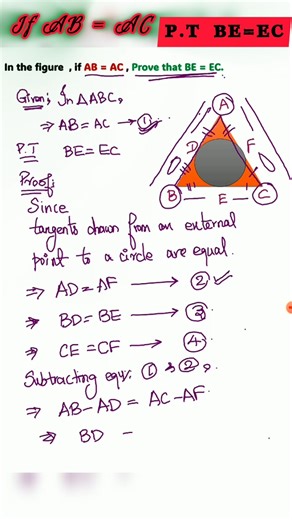 If AB = AC P.T BE=EC
In the figure , if AB = AC , Prove that BE = EC.
Given; In △ABC,
⇒ AB = AC → ①
P.T BE = EC
Proof;
Since
tangents drawn from an external
point to a circle are equal.
⇒ AD = AF → ②
⇒ BD = BE → ③
⇒ CE = CF → ④
Subtracting equn: ① & ②,
⇒ AB - AD = AC - AF
⇒ BD -
A
D
F
B
E
C